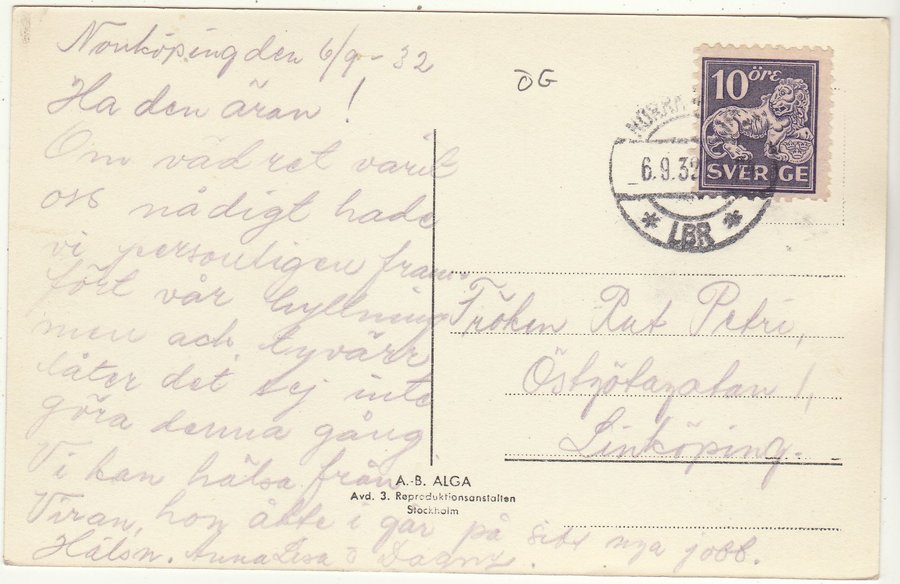 Norrköping den 6/9-32
Ha den äran!
Om vädret varit
oss nådigt hade
vi personligen fram-
fört vår hyllning
men ack tyvärr
låter det sej inte
göra denna gång
Vi kan hälsa från
Viran, hon åkte i går på sitt nya jobb.
Hälsn. Anna Lisa o Dagny.
ÖG
10 ÖRE
SVERIGE
NORRK
6.9.32
* LBR *
Fröken Rut Petri,
Östgötagatan 1,
Linköping.
A.-B. ALGA
Avd. 3. Reproduktionsanstalten
Stockholm